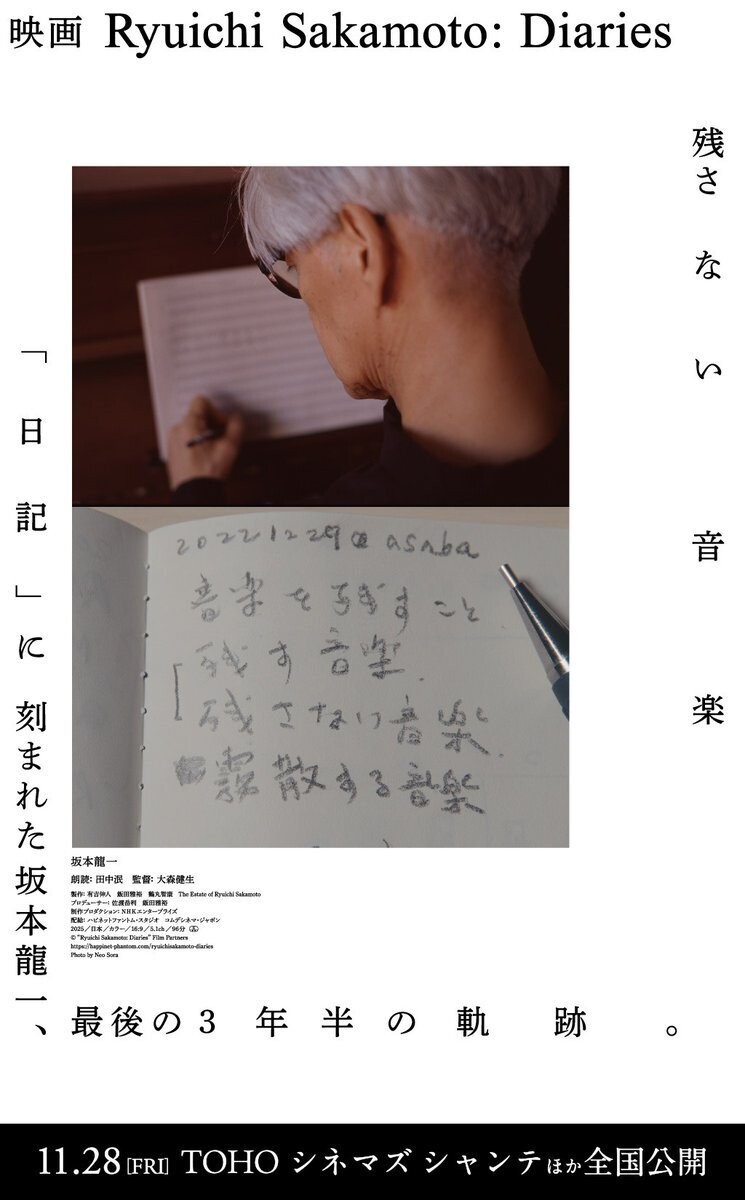 映画 Ryuichi Sakamoto: Diaries
残さない音楽
「日記」に刻まれた坂本龍一、
最後の3年半の軌跡。
20221229@asaba
音楽を残すこと
残す音楽.
残さない音楽.
霧散する音楽
坂本龍一
朗読: 田中泯 監督: 大森健生
製作: 有吉伸人 飯田雅裕 鶴丸智康 The Estate of Ryuichi Sakamoto
プロデューサー: 佐渡岳利 飯田雅裕
制作プロダクション: NHKエンタープライズ
配給: ハピネットファントム・スタジオ コムデシネマ・ジャポン
2025/日本/カラー/16:9/5.1ch/96分
© "Ryuichi Sakamoto: Diaries" Film Partners
https://happinet-phantom.com/ryuichisakamoto-diaries
Photo by Neo Sora
11.28[FRI] TOHO シネマズ シャンテほか全国公開